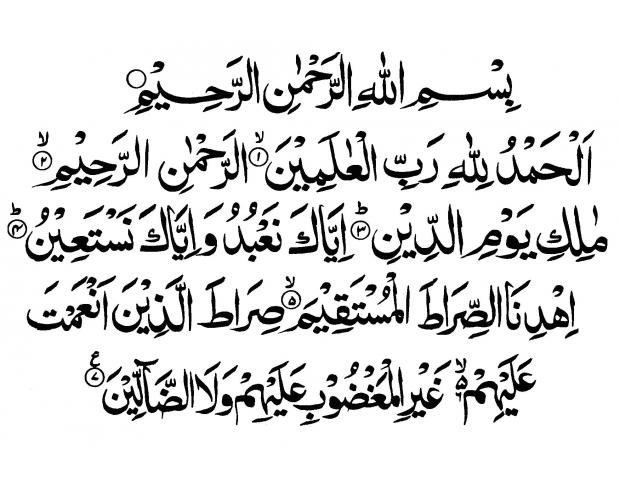 بِسْمِ اللهِ الرَّحْمٰنِ الرَّحِيْمِ ○
اَلْحَمْدُ لِلّٰهِ رَبِّ الْعٰلَمِيْنَ ۙ﴿۱﴾ الرَّحْمٰنِ الرَّحِيْمِ ۙ﴿۲﴾
مٰلِكِ يَوْمِ الدِّيْنِ ؕ﴿۳﴾ اِيَّاكَ نَعْبُدُ وَاِيَّاكَ نَسْتَعِيْنُ ؕ﴿۴﴾
اِهْدِنَا الصِّرَاطَ الْمُسْتَقِيْمَ ۙ﴿۵﴾ صِرَاطَ الَّذِيْنَ اَنْعَمْتَ
عَلَيْهِمْ ۙ۬﴿۶﴾ غَيْرِ الْمَغْضُوْبِ عَلَيْهِمْ وَلَا الضَّآلِّيْنَ ﴿۷﴾ۧ